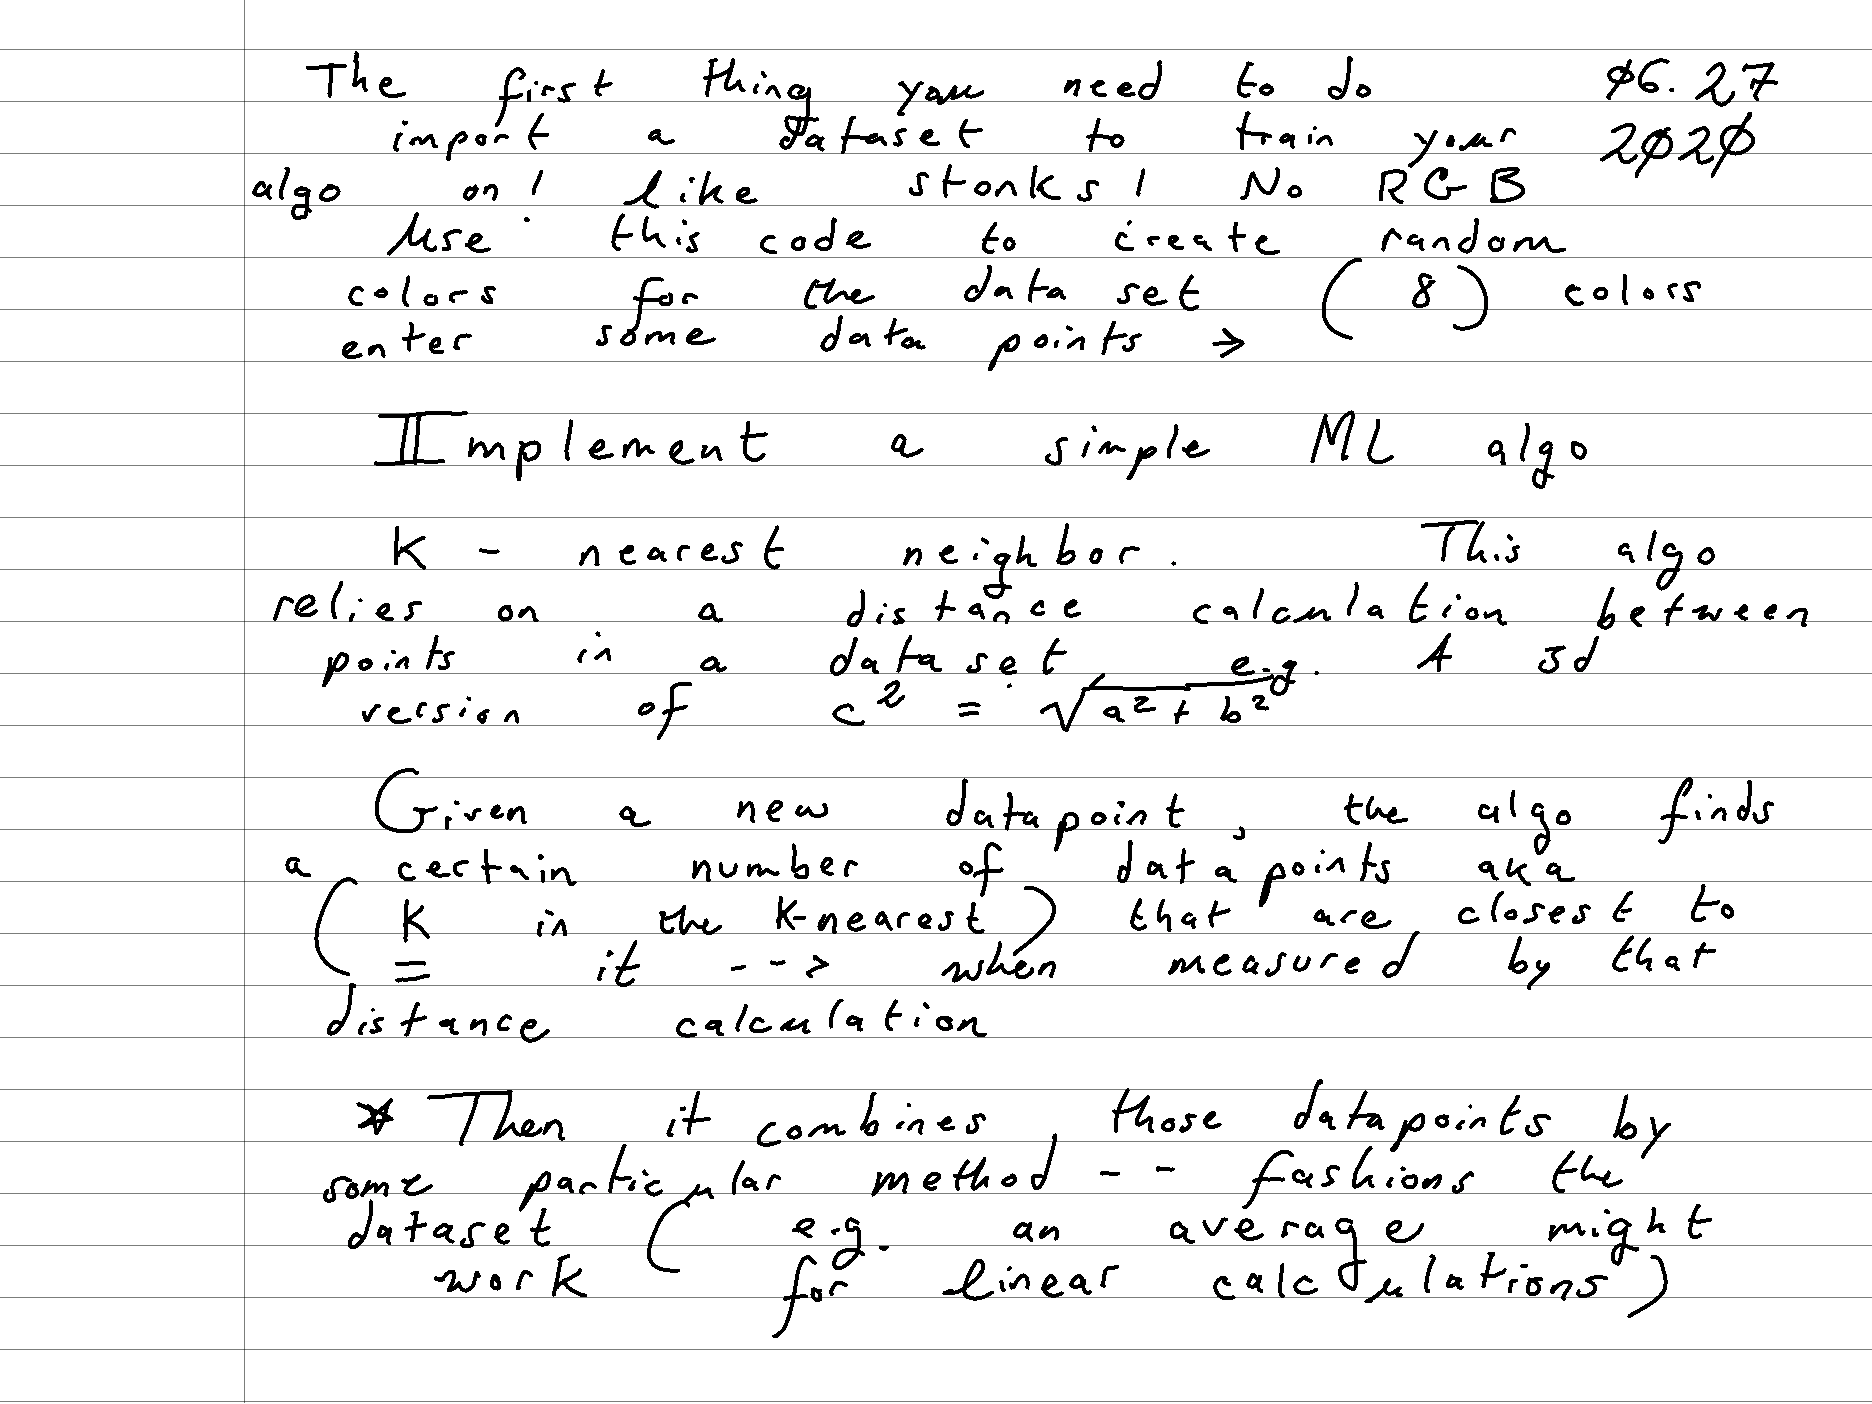 The first thing you need to do ø6.27
import a dataset to train your 2ø2ø
algo on! like stonks! No RGB
Use this code to create random
colors for the data set (8) colors
enter some data points →
Implement a simple ML algo
K - nearest neighbor. This algo
relies on a distance calculation between
points in a dataset e.g. A 3d
version of c² = √a² + b²
Given a new datapoint, the algo finds
a certain number of datapoints aka
(K in the K-nearest) that are closest to
= it --> when measured by that
distance calculation
* Then it combines those datapoints by
some particular method, -- fashions the
dataset (e.g. an average might
work for linear calculations)